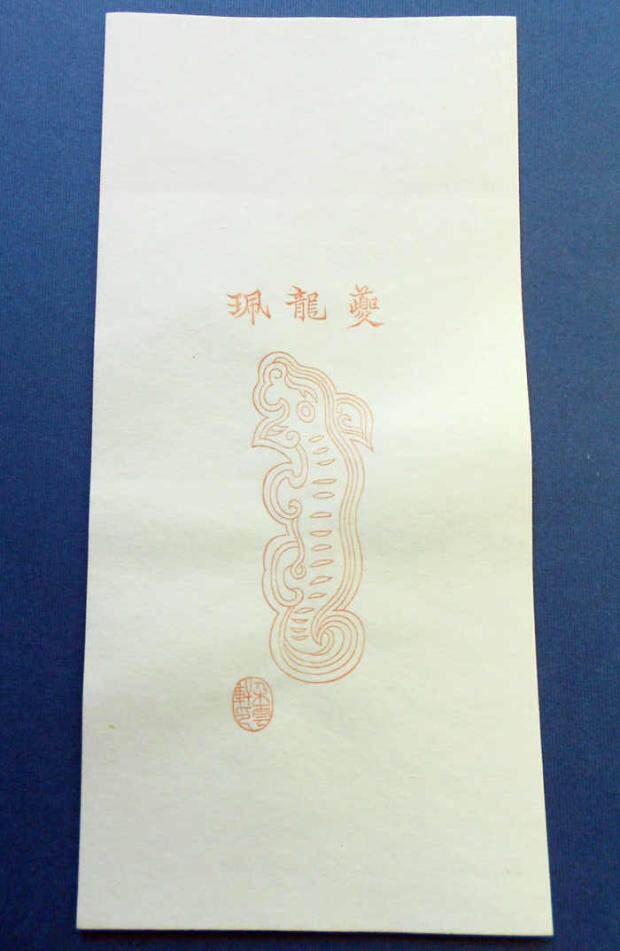 夔龍珮
朵雲軒